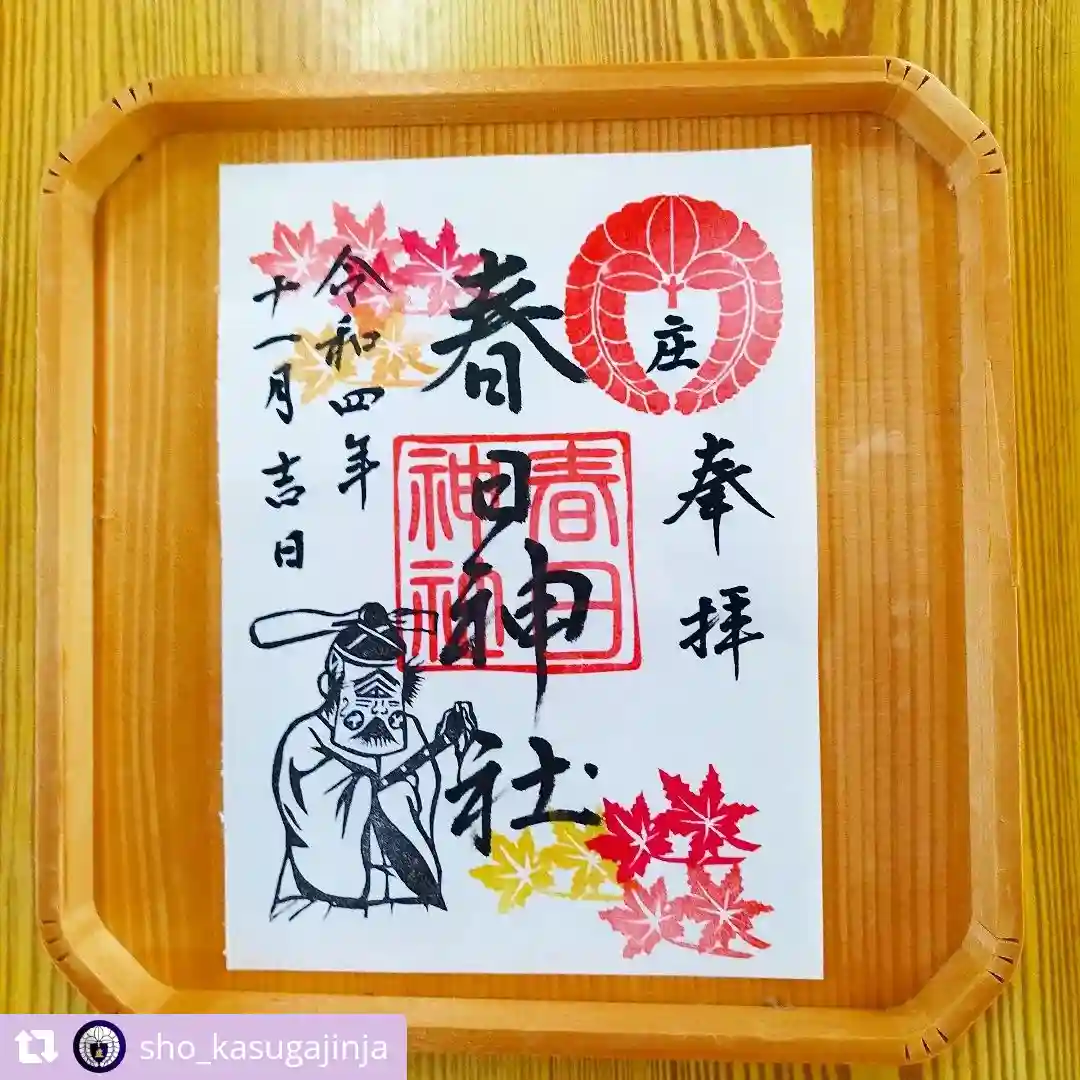 庄
奉拝
春日神社
春日
神社
令和四年
十一月吉日
sho_kasugajinja